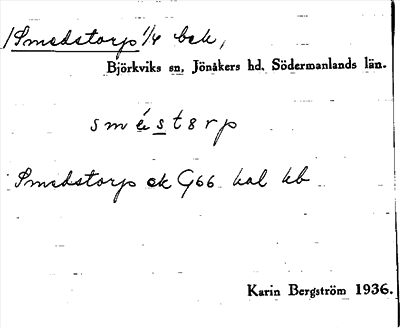 Smedstorp 1/4 bck,
Björkviks sn, Jönåkers hd, Södermanlands län.
s m é s t 8 r p
Smedstorp ek G66 kal kb
Karin Bergström 1936.